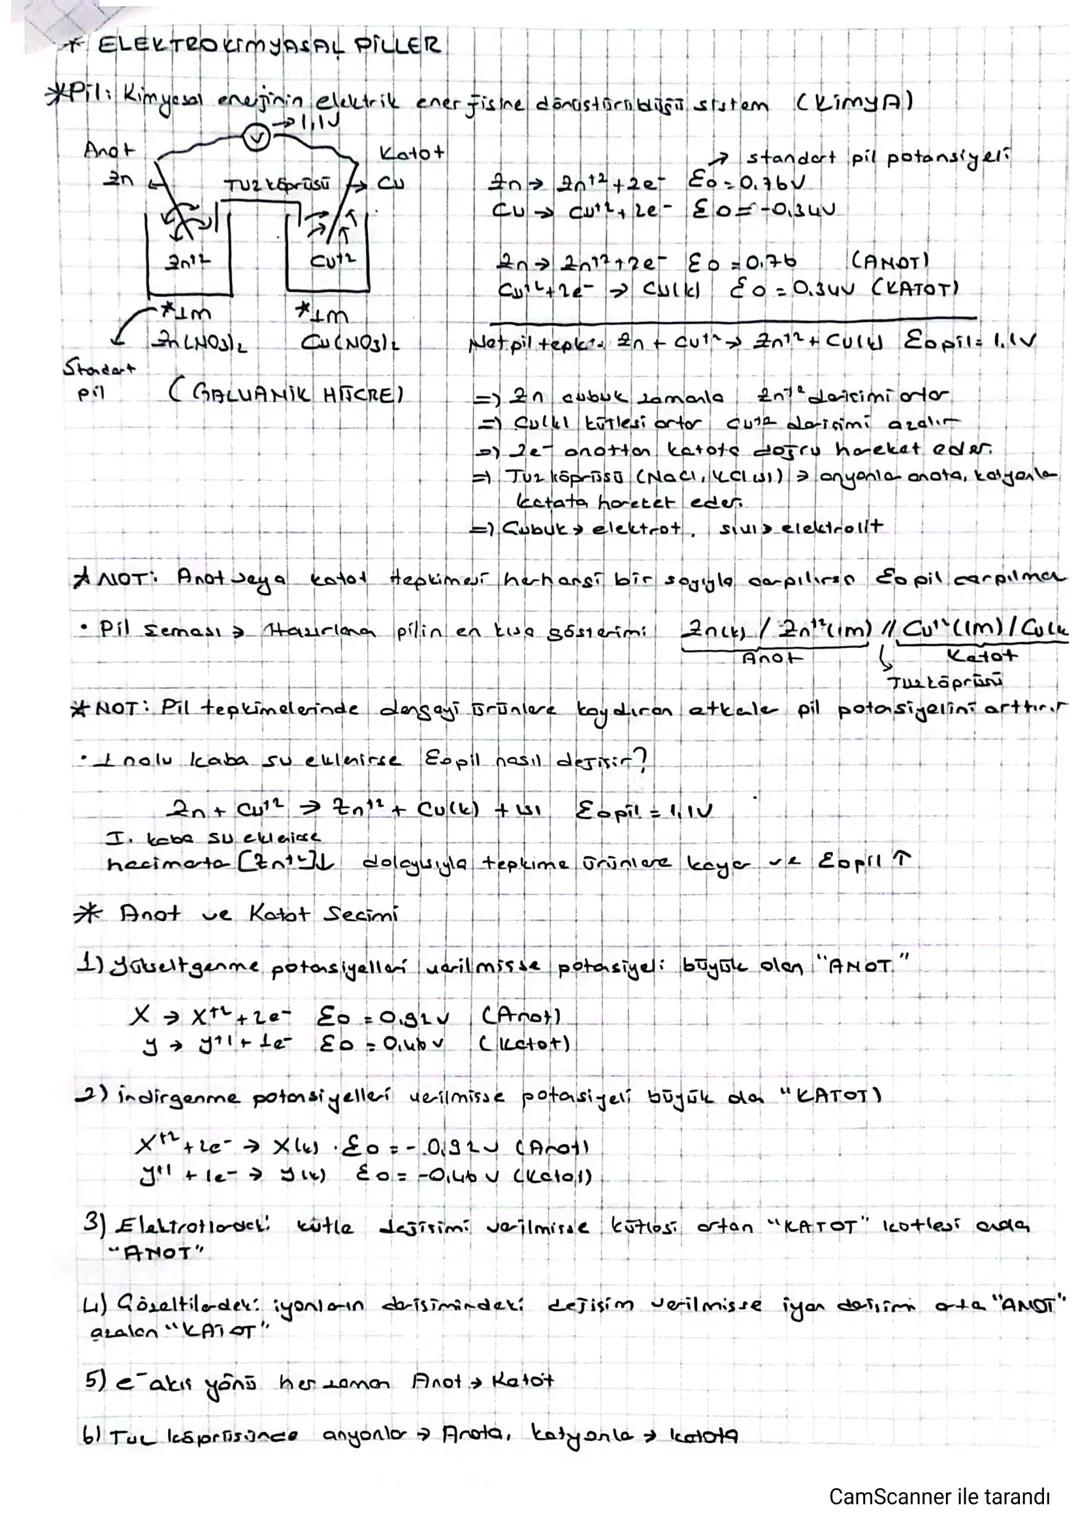 * ELEKTROKİMYASAL PİLLER
*Pil: Kimyasal enerjinin elektrik enerjisine dönüştürüldüğü sistem (KİMYA)
→1,1V
V
Anot
Katot
Zn
Tuz köprüsü
Cu
Zn+2
Cu+2
*1M
*1M
Zn(NO3)2
Cu(NO3)2
Standart
pil
(GALVANİK HÜCRE)
→ standart pil potansiyeli
Zn → Zn+2 + 2e- Eo = 0.76V
Cu → Cu+2 + 2e- Eo = -0,34V
Zn → Zn+2 + 2e- Eo = 0,76 (ANOT)
Cu+2 + 2e- → Cu(k) Eo = 0.34V (KATOT)
Net pil tepk: Zn + Cu+2 → Zn+2 + Cu(k) Eopil = 1.1V
=> Zn çubuk zamanla Zn+2 derişimi artar
=> Cu(k) kütlesi artar Cu+2 derişimi azalır
=> 2e- anottan katota doğru hareket eder.
=> Tuz köprüsü (NaCl, KCl vs) → anyonla anota, katyonla
katata hareket eder.
=> Çubuk → elektrot, sıvı → elektrolit
* NOT: Anot veya katot tepkimesi herhangi bir sayıyla çarpılırsa Eo pil çarpılmaz
• Pil şeması → Hazırlana pilin en kısa gösterimi Zn(k) / Zn+2(1m) // Cu+2(1M) / Cu(k
Anot
Katot
Tuz köprüsü
* NOT: Pil tepkimelerinde dengeyi ürünlere kaydıran etkile pil potansiyelini arttırır
• 1 nolu kaba su eklenirse Eopil nasıl değişir?
Zn + Cu+2 → Zn+2 + Cu(k) + ısı Eopil = 1,1V
I. kaba su eklenirse
hacim arta [Zn+2]↓ dolayısıyla tepkime ürünlere kayar ve Eopil ↑
* Anot ve Katot Seçimi
1) Yükseltgenme potansiyelleri verilmişse potansiyeli büyük olan "ANOT"
X → X+2 + 2e- Eo = 0,92V (Anot)
y → y+1 + 1e- Eo = 0,46V (Katot)
2) İndirgenme potansiyelleri verilmişse potansiyeli büyük ola "KATOT)
X+2 + 2e- → X(k) Eo = -0,92V (Anot)
y+1 + 1e- → y(k) Eo = -0,46V (Katot)
3) Elektrotlardaki kütle değişimi verilmişse kütlesi artan "KATOT" kütlesi azala
"ANOT"
4) Çözeltilerdeki iyonların derişimindeki değişim verilmişse iyon derişimi arta "ANOT"
azalan "KATOT"
5) e- akış yönü her zaman Anot → Katot
6) Tuz köprüsünde anyonlar → Anota, katyonla → katota
CamScanner ile tarandı